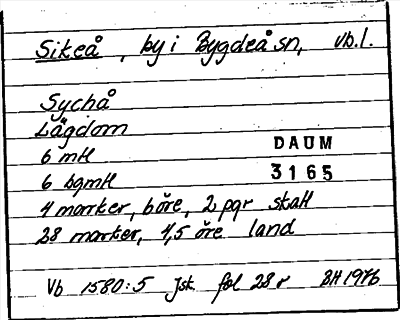 Sikeå, by i Bygdeå sn, vb.l.
Sychå
Lägdom
6 mtl
6 bgmtl
DAUM
3165
4 marker, böre, 2 pgr skatt
28 marker, 4,5 öre land
Vb 1580:5 Jsk. fol 28 r BH 1976